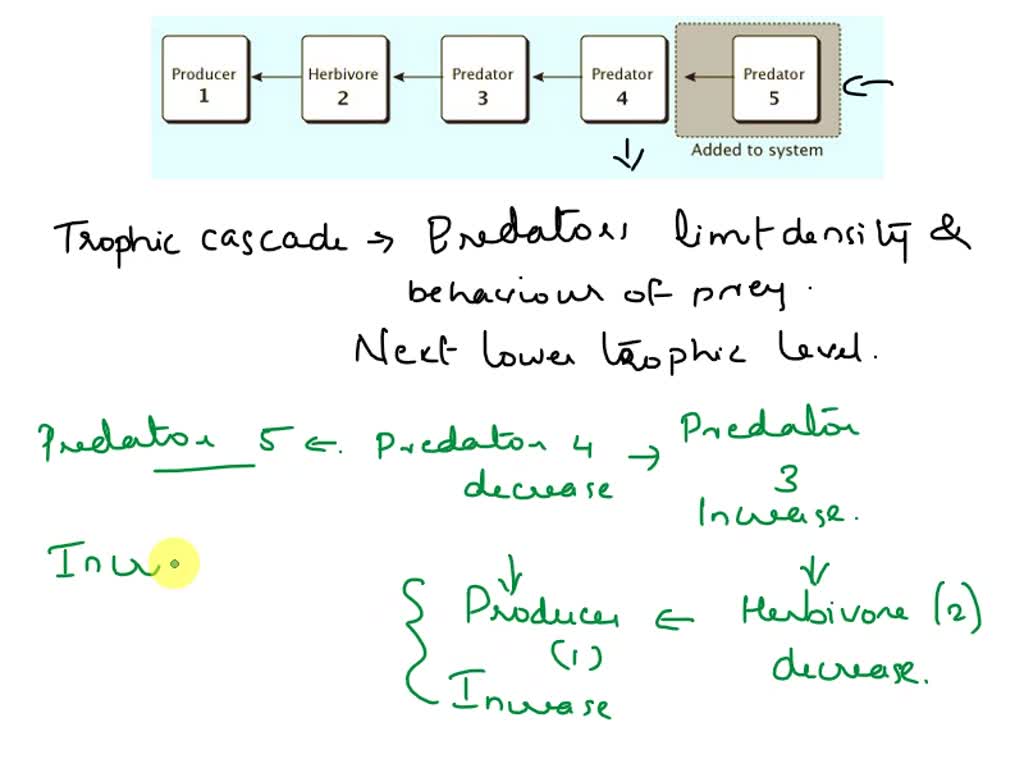 Producer 1 Herbivore 2 Predator 3 Predator 4 Predator 5
Added to system
Trophic cascade → Predators limit density &
behaviour of prey.
Next lower trophic level.
Predator 5 ← Predator 4 decrease → Predator 3 Increase.
Incr
Producer (1) Increase ← Herbivore (2) decrease.